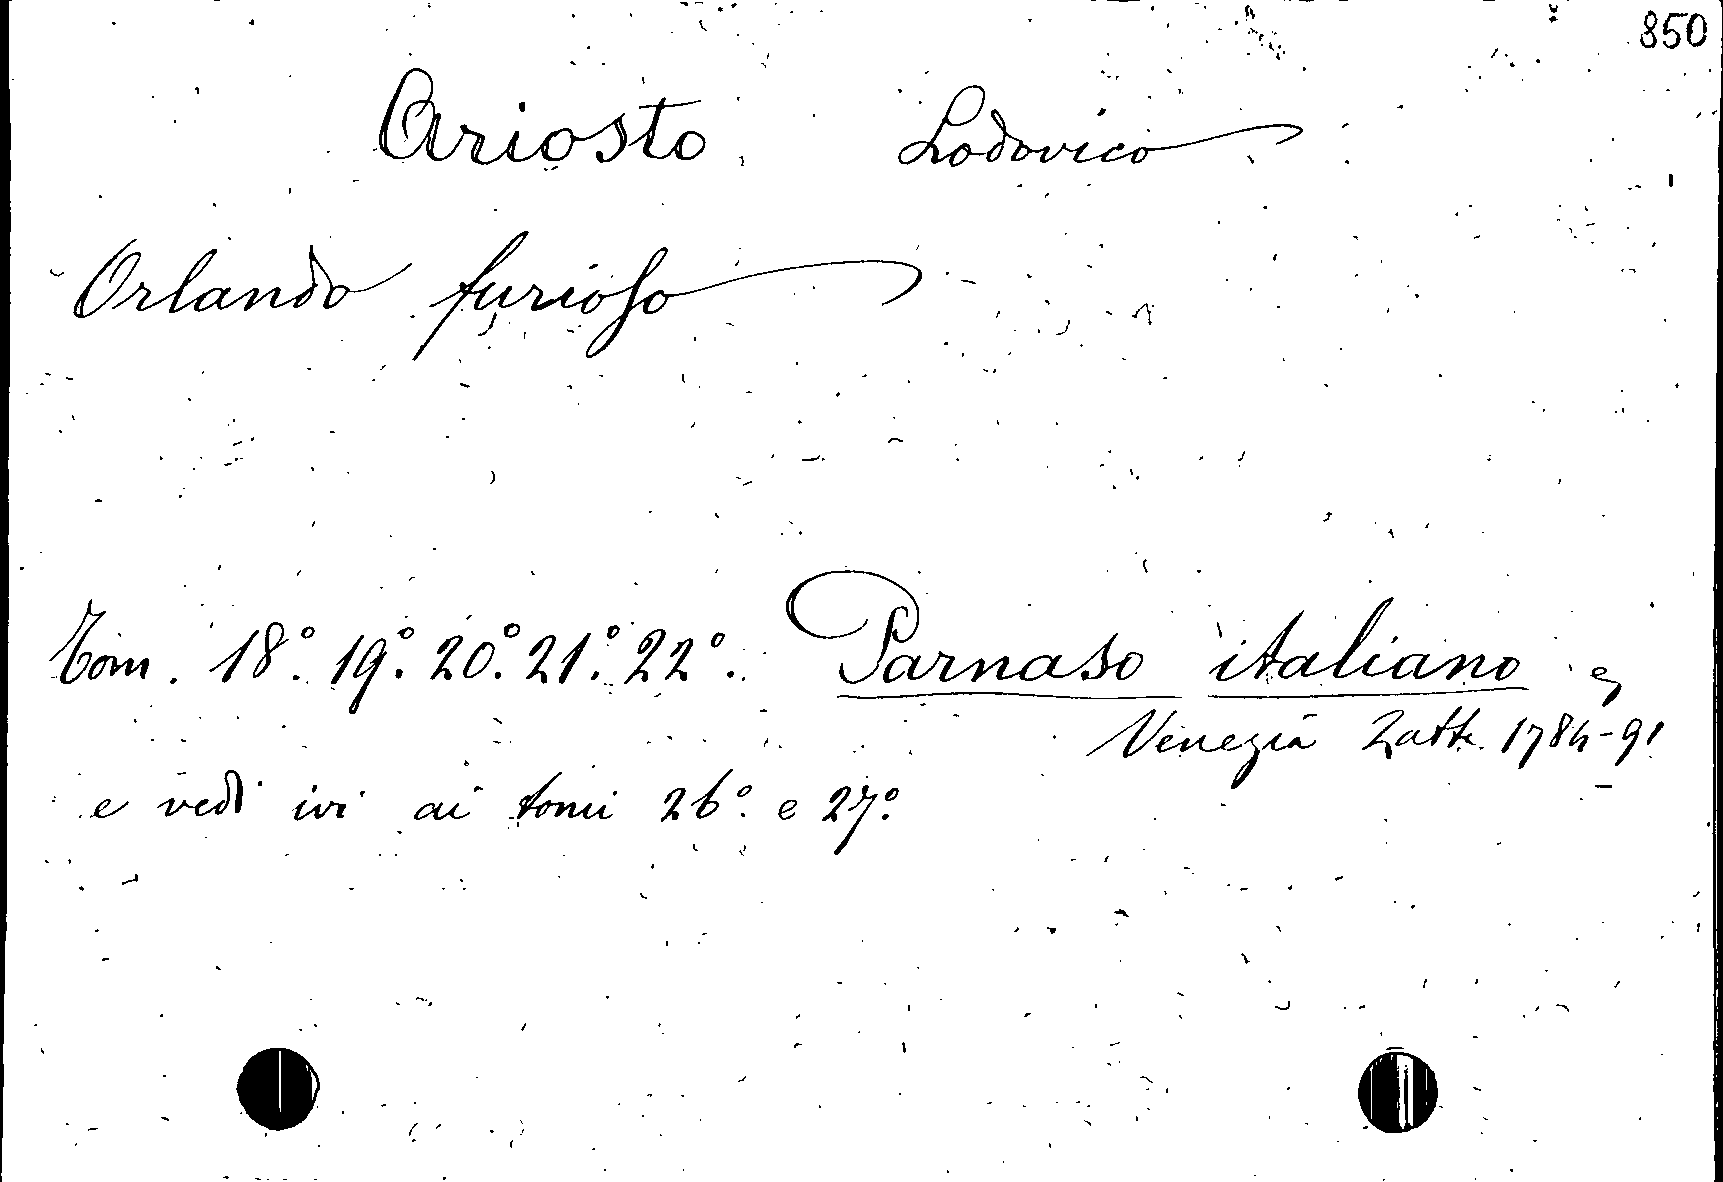 850
Ariosto Lodovico
Orlando furioso
Tom. 18º. 19º. 20º. 21º. 22º. Parnaso italiano e
Venezia Zatta 1784-91
e vedi ivi ai tomi 26º. e 27º.